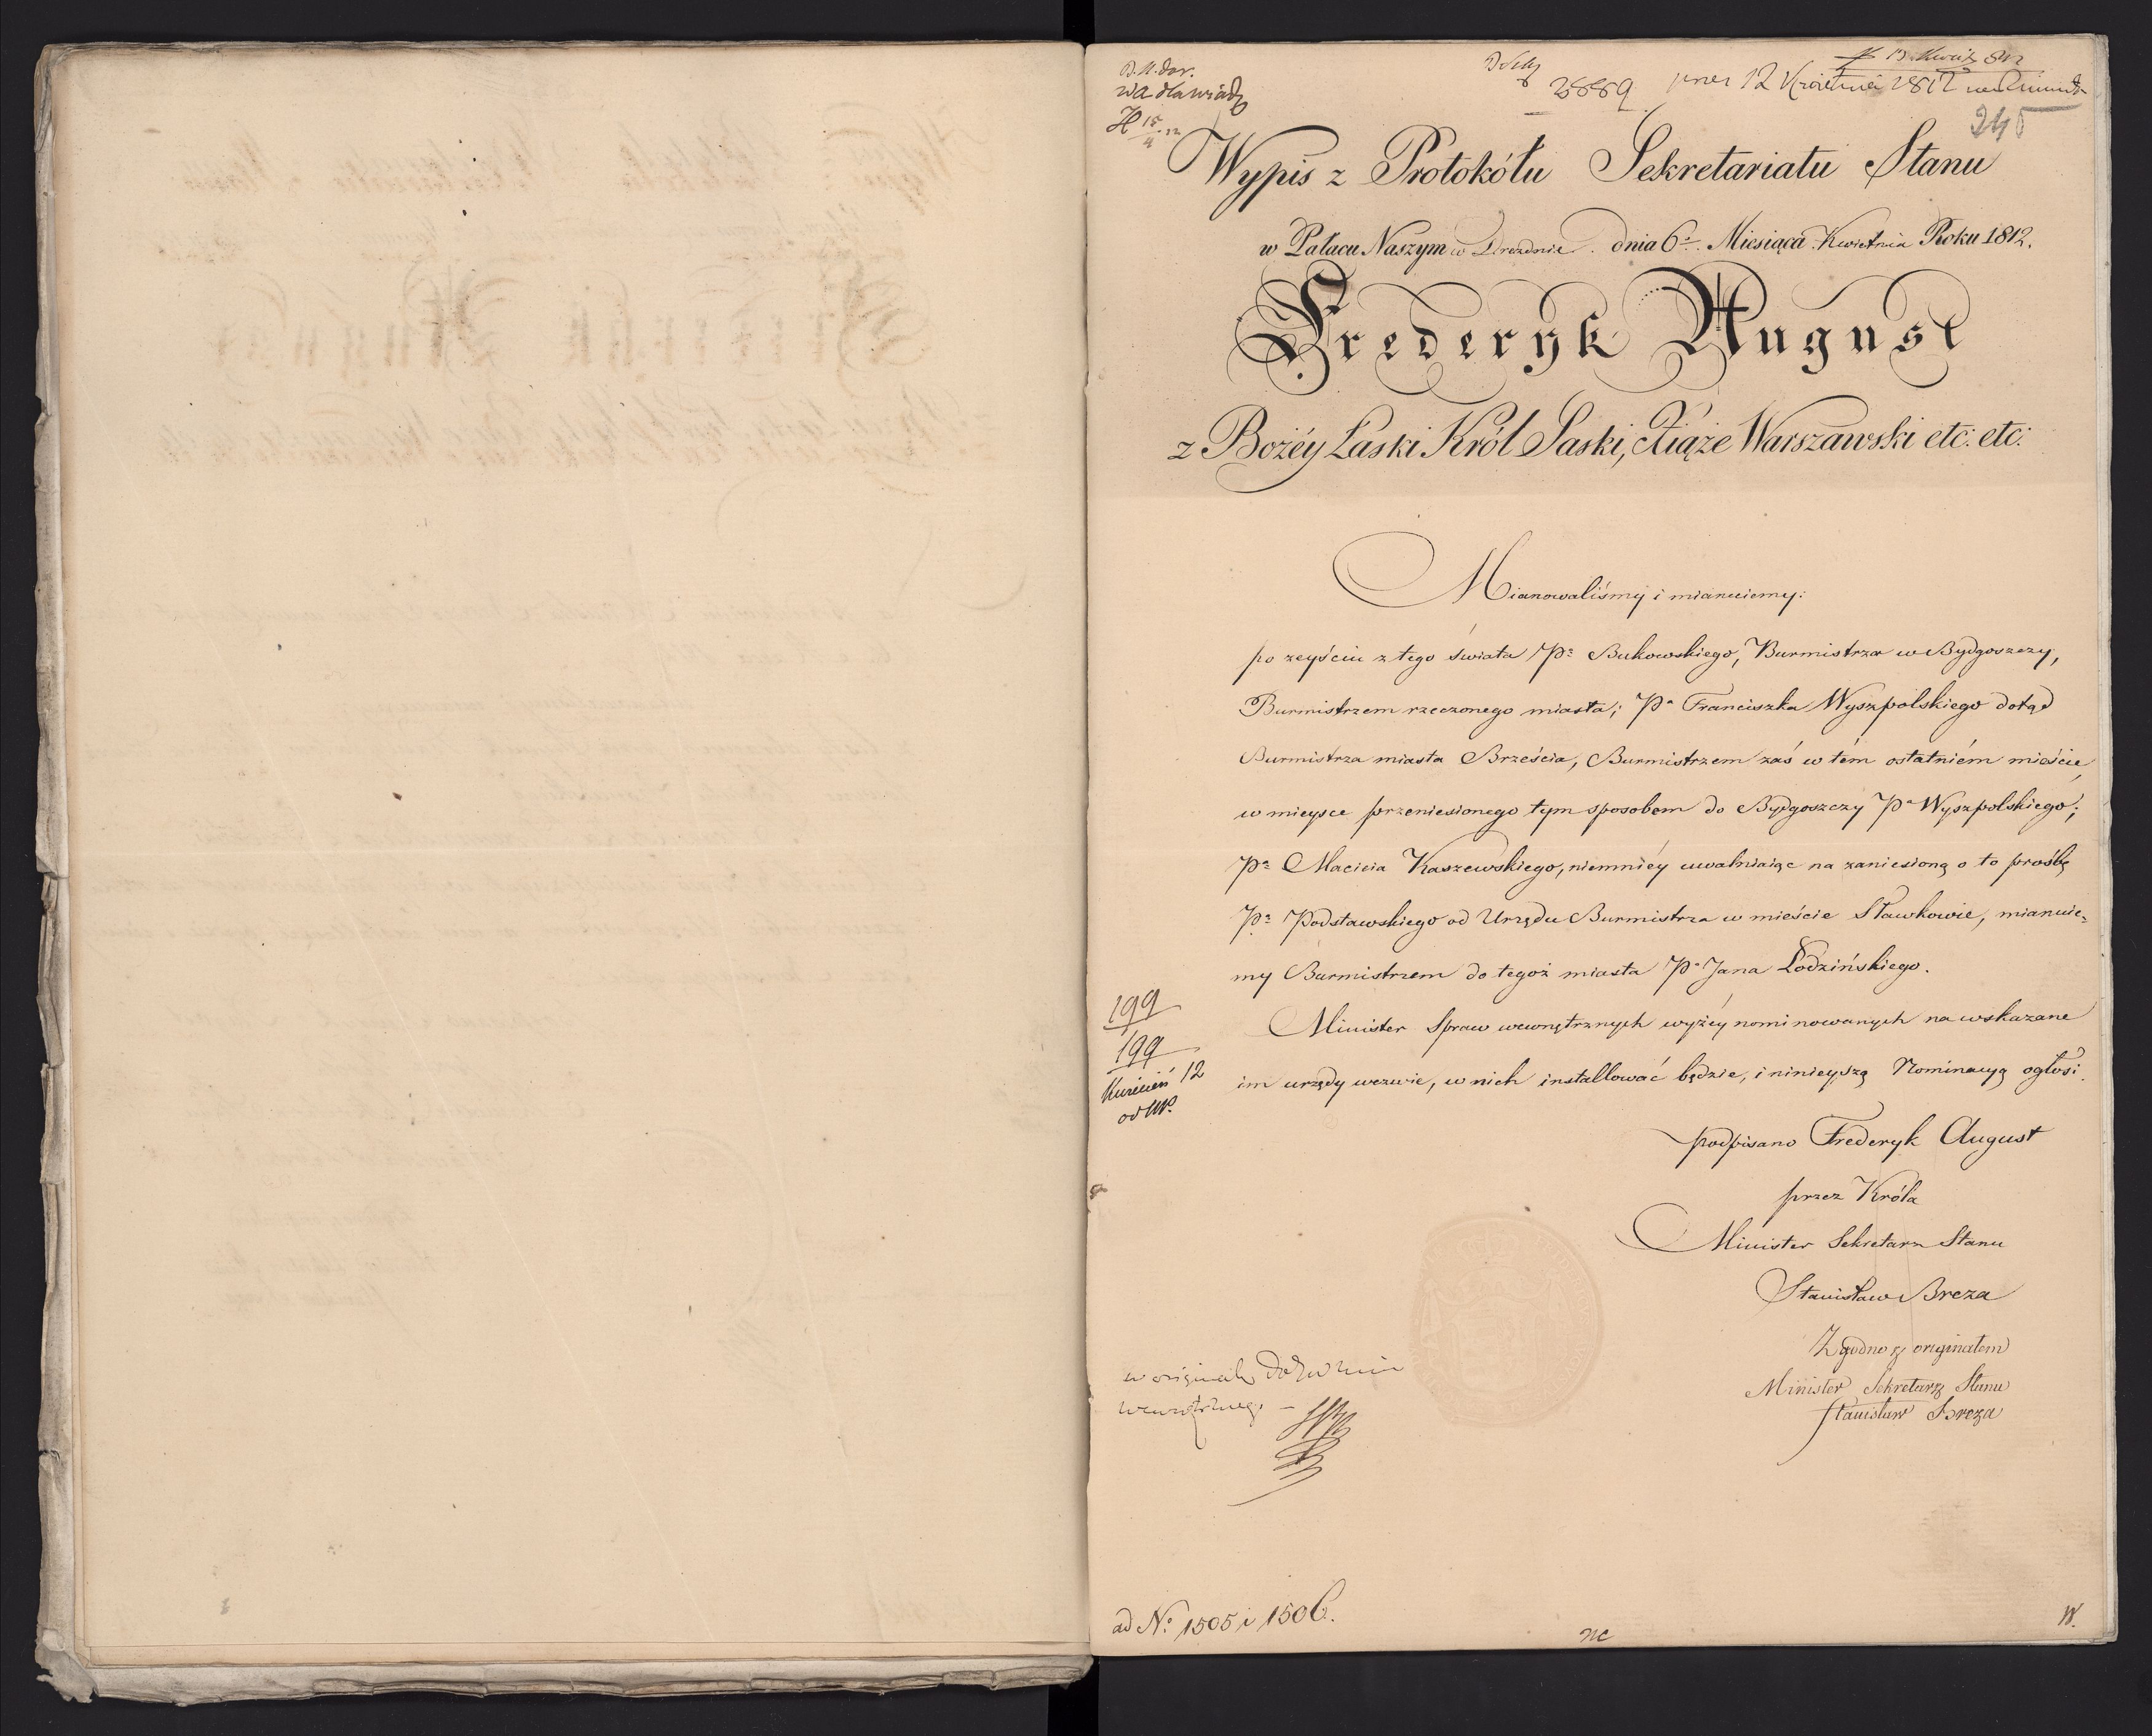 2889 12 Kwietnia 1812
245
H 15/4 12
Wypis z Protokółu Sekretariatu Stanu
w Pałacu Naszym w Dreznie. dnia 6º. Miesiąca Kwietnia Roku 1812.
Frederyk August
z Bożéy Łaski Król Saski, Xiąże Warszawski etc: etc:
Mianowaliśmy i mianuiemy:
po zeyściu z tego świata Pª Bukowskiego, Burmistrza w Bydgoszczy,
Burmistrzem rzeczonego miasta; Pª Franciszka Wyszpolskiego dotąd
Burmistrza miasta Brześcia, Burmistrzem zaś w tém ostatniém mieście,
w mieysce przeniesionego tym sposobem do Bydgoszczy Pª Wyszpolskiego;
Pª Macieia Kaszewskiego, niemniéy uwalniaiąc na zaniesioną o to prośbę
Pª Podstawskiego od Urzędu Burmistrza w mieście Sławkowie, mianuie=
my Burmistrzem do tegoż miasta Pª Jana Łodzińskiego.
Minister Spraw wewnętrznych wyżéy nominowanych na wskazane
im urzędy wezwie, w nich installować będzie, i ninieyszą Nominacyą ogłosi.
199
199
Kwiecień 12
podpisano Frederyk August
przez Króla
Minister Sekretarz Stanu
Stanisław Breza
Zgodno z originałem
Minister Sekretarz Stanu
Stanisław Breza
ad Nº 1505 i 1506.